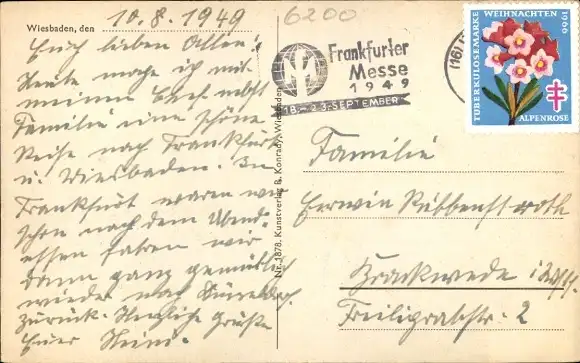 Wiesbaden, den 10.8.1949
6200
Euch lieben Allen!
Heute mache ich mit
meinem nebst
Familie eine schöne
Reise nach Frankfurt
u. Wiesbaden. In
Frankfurt waren wir
schon nach dem Abend-
essen fahren wir
dann ganz gemütl.
wieder nach Düsseldorf
zurück. Herzliche Grüße
Euer Heini.
Nr. 1878. Kunstverlag R. Konrady, Wiesbaden
Frankfurter
Messe
1949
18.-23. SEPTEMBER
(16)
WEIHNACHTEN 1966
TUBERKULOSEMARKE
ALPENROSE
Familie
Erwin
Brackwede i. Westf.
Freiligrathstr. 2